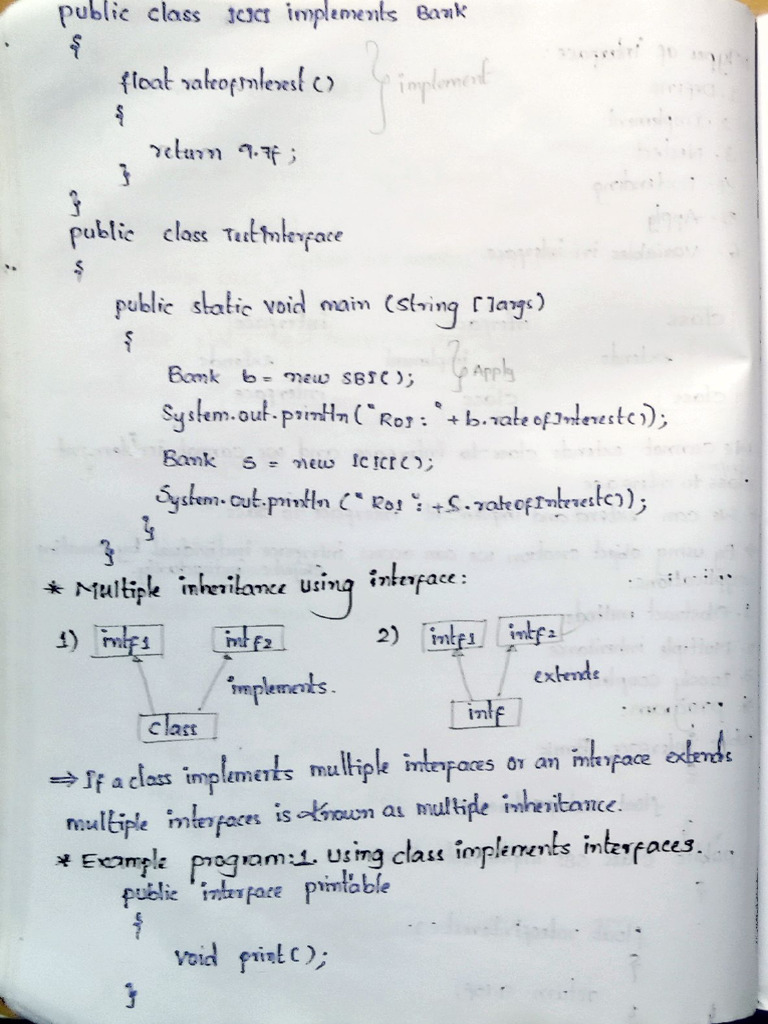 public class ICICI implements Bank
{
float rateofInterest () } implement
{
return 9.7f ;
}
}
public class TestInterface
{
public static void main (String []args)
{
Bank b = new SBI(); } Apply
System.out.println("ROI: "+b.rateofInterest());
Bank S = new ICICI();
System.out.println ("ROI": +S.rateofInterest());
}
}
* Multiple inheritance using interface:
1) intf1 intf2 2) intf1 intf2
implements. extends
class intf
⇒ If a class implements multiple interfaces or an interface extends
multiple interfaces is known as multiple inheritance.
* Example program:1. Using class implements interfaces.
public interface printable
{
void print();
}